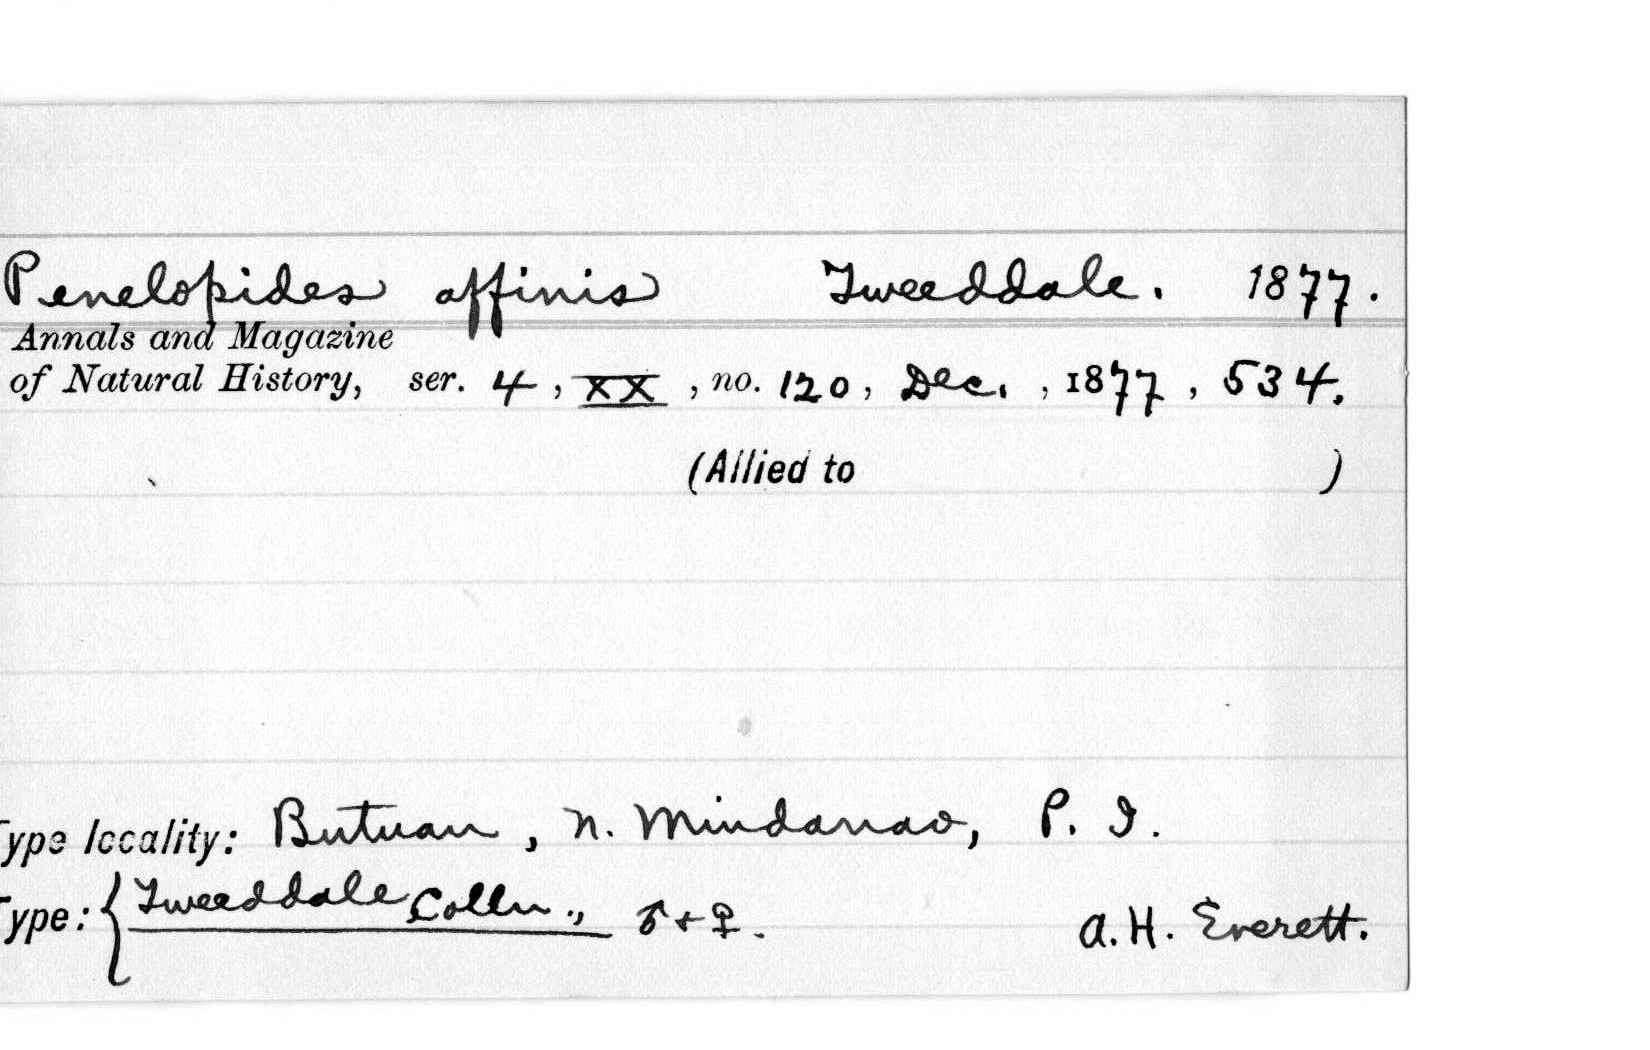 Penelopides affinis Tweeddale. 1877.
Annals and Magazine
of Natural History, ser. 4, XX, no. 120, Dec., 1877, 534.
(Allied to )
Type locality: Butuan, N. Mindanao, P. I.
Type: { Tweeddale Colln., ♂ + ♀. A. H. Everett.